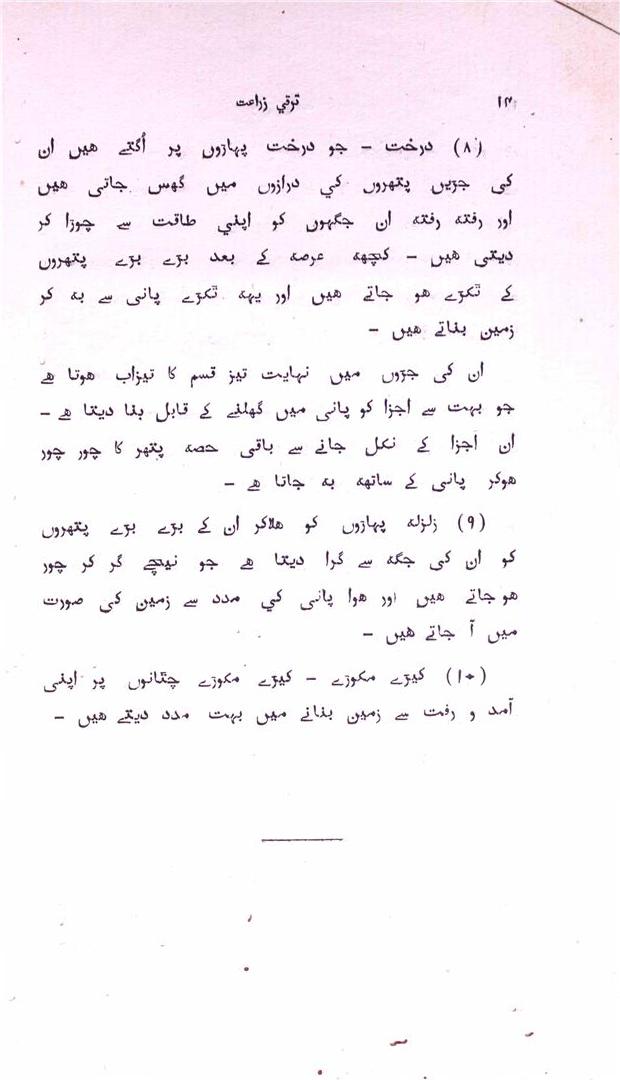 ۱۴ ترقي زراعت
(۸) درخت - جو درخت پہاڑوں پر اُگتے هیں ان
کی جڑیں پتھروں کي درازوں میں گھس جاتی هیں
اور رفتہ رفتہ ان جگہوں کو اپني طاقت سے چوڑا کر
دیتی هیں - کچھہ عرصہ کے بعد بڑے بڑے پتھروں
کے ٹکڑے هو جاتے هیں اور یہہ ٹکڑے پانی سے بہ کر
زمین بناتے هیں -
ان کی جڑوں میں نہایت تیز قسم کا تیزاب هوتا هے
جو بہت سے اجزا کو پانی میں گھلنے کے قابل بنا دیتا هے -
ان اجزا کے نکل جانے سے باقی حصہ پتھر کا چور چور
هوکر پانی کے ساتھہ بہ جاتا هے -
(۹) زلزلہ پہاڑوں کو هلاکر ان کے بڑے بڑے پتھروں
کو ان کی جگہ سے گرا دیتا هے جو نیچے گر کر چور
هو جاتے هیں اور هوا پانی کي مدد سے زمین کی صورت
میں آ جاتے هیں -
(۱۰) کیڑے مکوڑے - کیڑے مکوڑے چٹانوں پر اپنی
آمد و رفت سے زمین بنانے میں بہت مدد دیتے هیں -